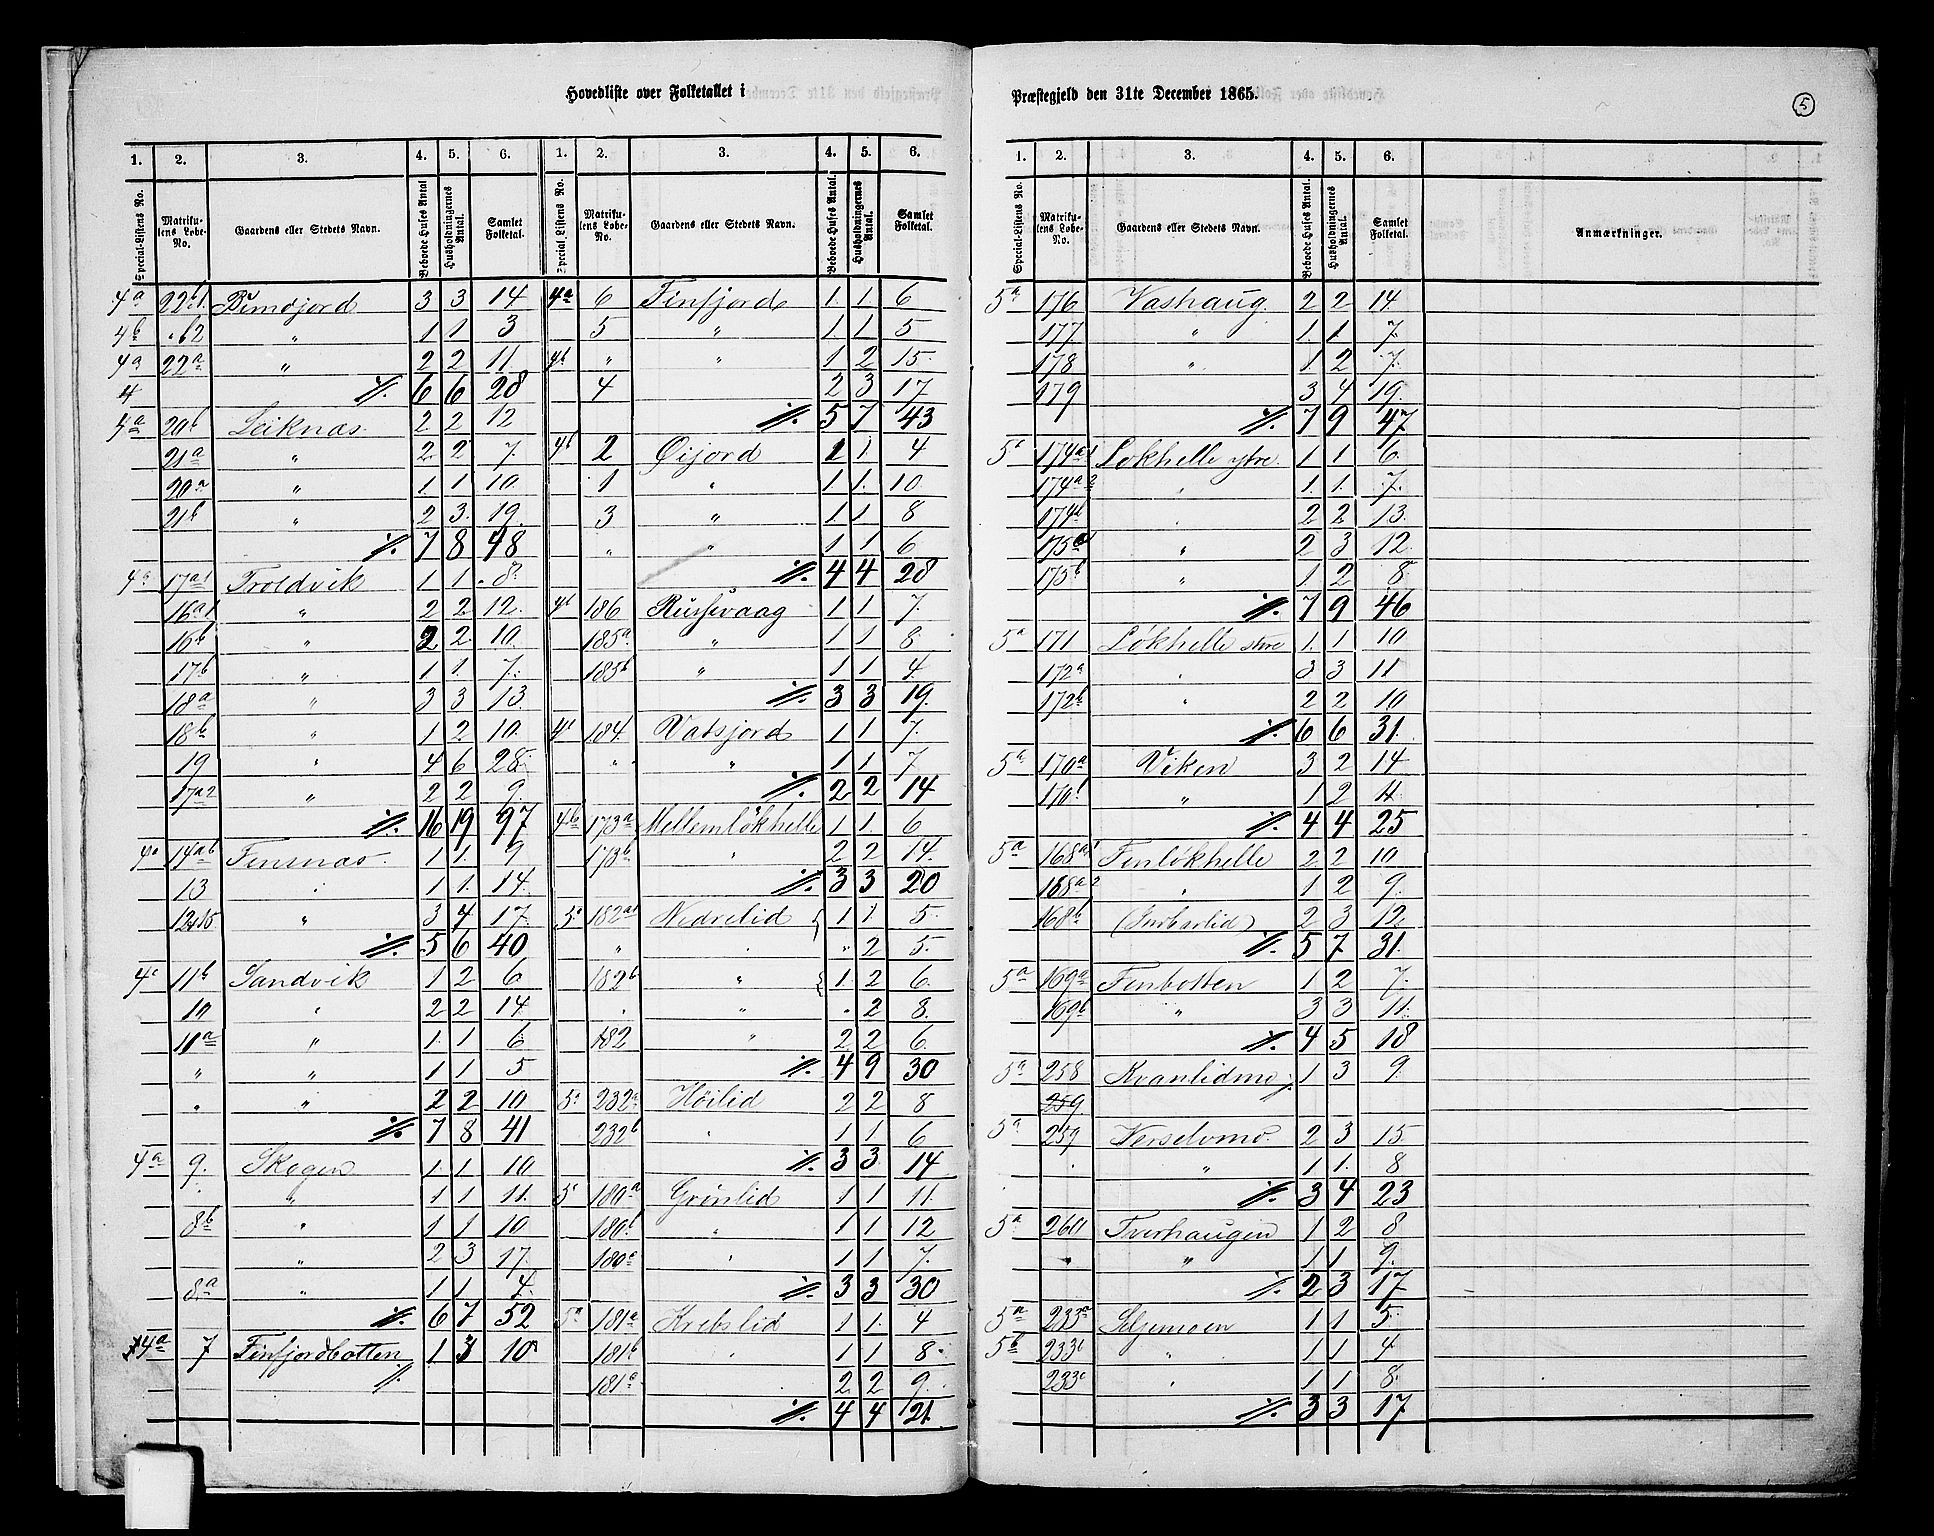 Hovedliste over Folketallet i
1. 2. 3. 4. 5. 6. 1. 2. 3. 4. 5. 6.
Special-Listens No. Matrikulens Løbe-No. Gaardens eller Stedets Navn. Beboede Huses Antal Husholdningernes Antal. Samlet Folketal. Special Listens No. Matrikulens Løbe-No. Gaardens eller Stedets Navn. Beboede Huses Antal. Husholdningernes Antal. Samlet Folketal.
4a 22b1 3 3 14
4b " b2 " 1 1 3
4a 22a " 2 2 11
4 ./. 6 6 28
20b Leiknæs 2 2 12
21a " 2 2 7
20a " 1 1 10
21b " 2 3 19
./. 7 8 48
17a1 Troldvik 1 1 8
16a1 " 2 2 12
16b " 2 2 10
17b " 1 1 7
18a " 3 3 13
18b " 1 2 10
19 " 4 6 28
17a2 " 2 2 9
./. 16 19 97
14ab Finsnæs 1 1 9
13 " 1 1 14
" 3 4 17
./. 5 6 40
11b Sandvik 1 2 6
" 2 2 14
" 1 1 6
" " 1 1 5
" " 2 2 10
./. 7 8 41
4a 9 Skogen 1 1 10
" " 1 1 11
8b " 1 1 10
" 2 3 17
8a " 1 1 4
./. 6 7 52
4a 7 Finfjordbotten 1 3 10
./.
4a 6 Finfjord 1 1 6
5 " 1 1 5
4b " " 1 2 15
4 2 3 17
./. 5 7 43
4b 2 Øijord 1 1 4
1 " 1 1 10
3 " 1 1 8
" " 1 1 6
./. 4 4 28
4b 186 Russevaag 1 1 7
185a " 1 1 8
185b " 1 1 4
./. 3 3 19
184 Vatsjord 1 1 7
" " 1 1 7
./. 2 2 14
4b 173a Mellemløkhelle 1 1 6
173b " 2 2 14
./. 3 3 20
182a1 Nedrelid 1 1 5
" " " 2 5
182b " 1 2 6
" " " 2 8
182 " 2 2 6
./. 4 9 30
232a Høilid 2 2 8
232b " 1 1 6
./. 3 3 14
180a Grønlid 1 1 11
180b " 1 1 12
180c " 1 1 7
./. 3 3 30
5a 181a Krebslid 1 1 4
181b " 1 1 8
181a 2 2 9
./. 4 4 21
Præstegjeld den 31te December 1865.
5
1. 2. 3. 4. 5. 6.
Special-Listens No. Matrikulens Løbe-No. Gaardens eller Stedets Navn. Beboede Huses Antal. Husholdningernes Antal. Samlet Folketal. Anmærkninger.
5a 176 Vashaug 2 2 14
177 " 1 1 7
178 " 1 2 7
179 3 4 19
./. 7 9 47
174a1 Løkhelle ytre 1 1 6
174a2 " 1 1 7
174b " 2 2 13
175a " 2 3 12
175b " 1 2 8
./. 7 9 46
5a 171 Løkhelle 1 1 10
172a " 3 3 11
172b " 2 2 10
./. 6 6 31
5a 170a Viken 3 2 14
170b " 1 2 11
./. 4 4 25
5a 168a1 Finløkhelle 2 2 10
168a2 " 1 2 9
168b 2 3 12
./. 5 7 31
5a 169a Finbotten 1 2 7
169b " 3 3 11
./. 4 5 18
5a 258 Kvanlidmo 1 3 9
259
5a 259 2 3 15
" " 1 1 8
./. 3 4 23
5a 260 Tverhaugen 1 2 8
" " 1 1 9
./. 2 3 17
5a 233a Seljemoen 1 1 5
5b 233b " 1 1 4
233c " 1 1 8
./. 3 3 17